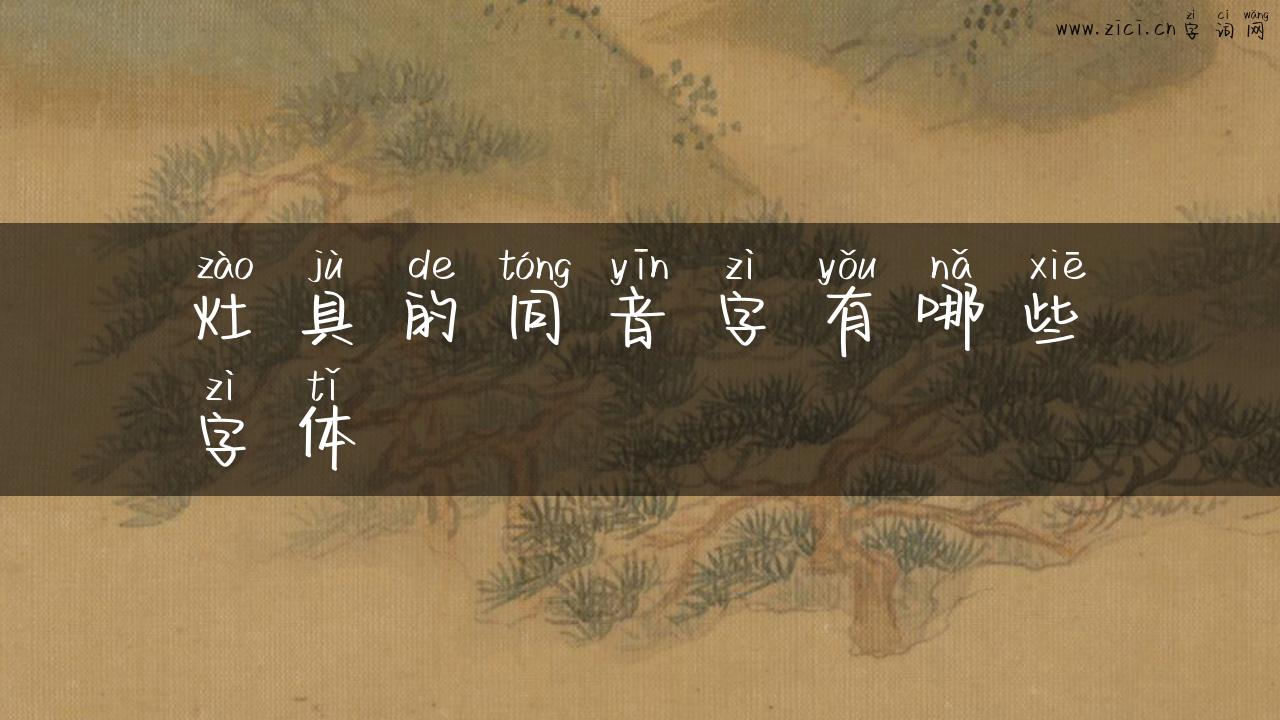 zì cí wǎng
www.zici.cn 字词网
zào jù de tóng yīn zì yǒu nǎ xiē
灶具的同音字有哪些
zì tǐ
字体